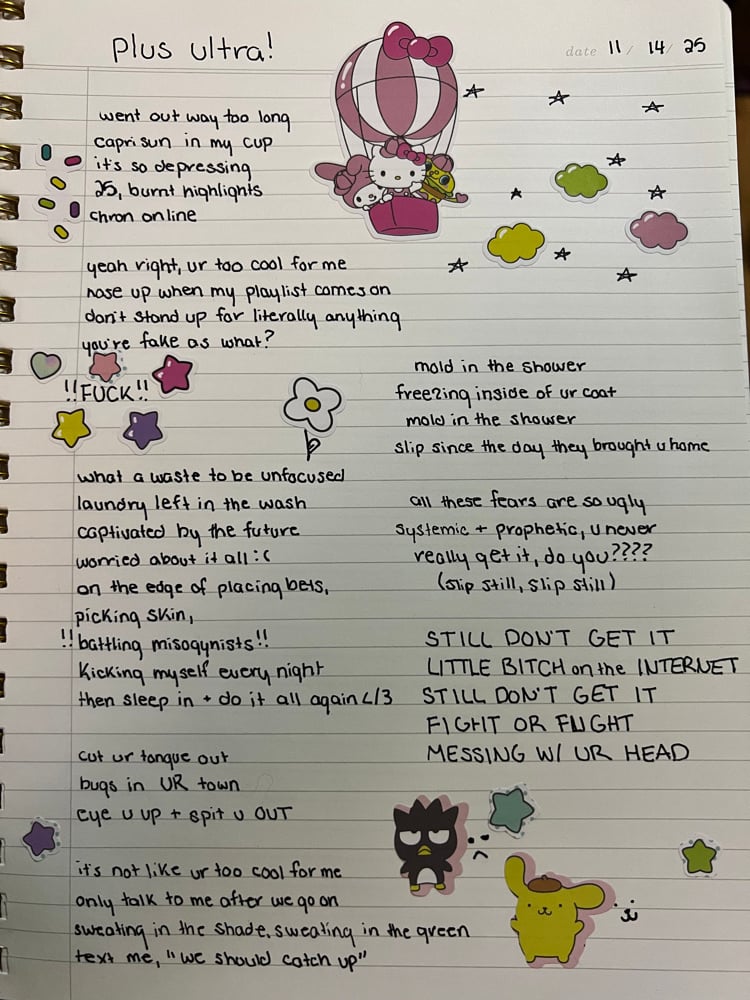 plus ultra!
date 11/ 14/ 25
went out way too long
capri sun in my cup
it's so depressing
25, burnt highlights
chron online
yeah right, ur too cool for me
nose up when my playlist comes on
don't stand up for literally anything
you're fake as what?
!!FUCK!!
what a waste to be unfocused
laundry left in the wash
captivated by the future
worried about it all :(
on the edge of placing bets,
picking skin,
!!battling misogynists!!
kicking myself every night
then sleep in + do it all again </3
cut ur tongue out
bugs in UR town
eye u up + spit u OUT
it's not like ur too cool for me
only talk to me after we go on
sweating in the shade, sweating in the green
text me, "we should catch up"
mold in the shower
freezing inside of ur coat
mold in the shower
slip since the day they brought u home
all these fears are so ugly
systemic + prophetic, u never
really get it, do you????
(slip still, slip still)
STILL DON'T GET IT
LITTLE BITCH on the INTERNET
STILL DON'T GET IT
FIGHT OR FLIGHT
MESSING W/ UR HEAD